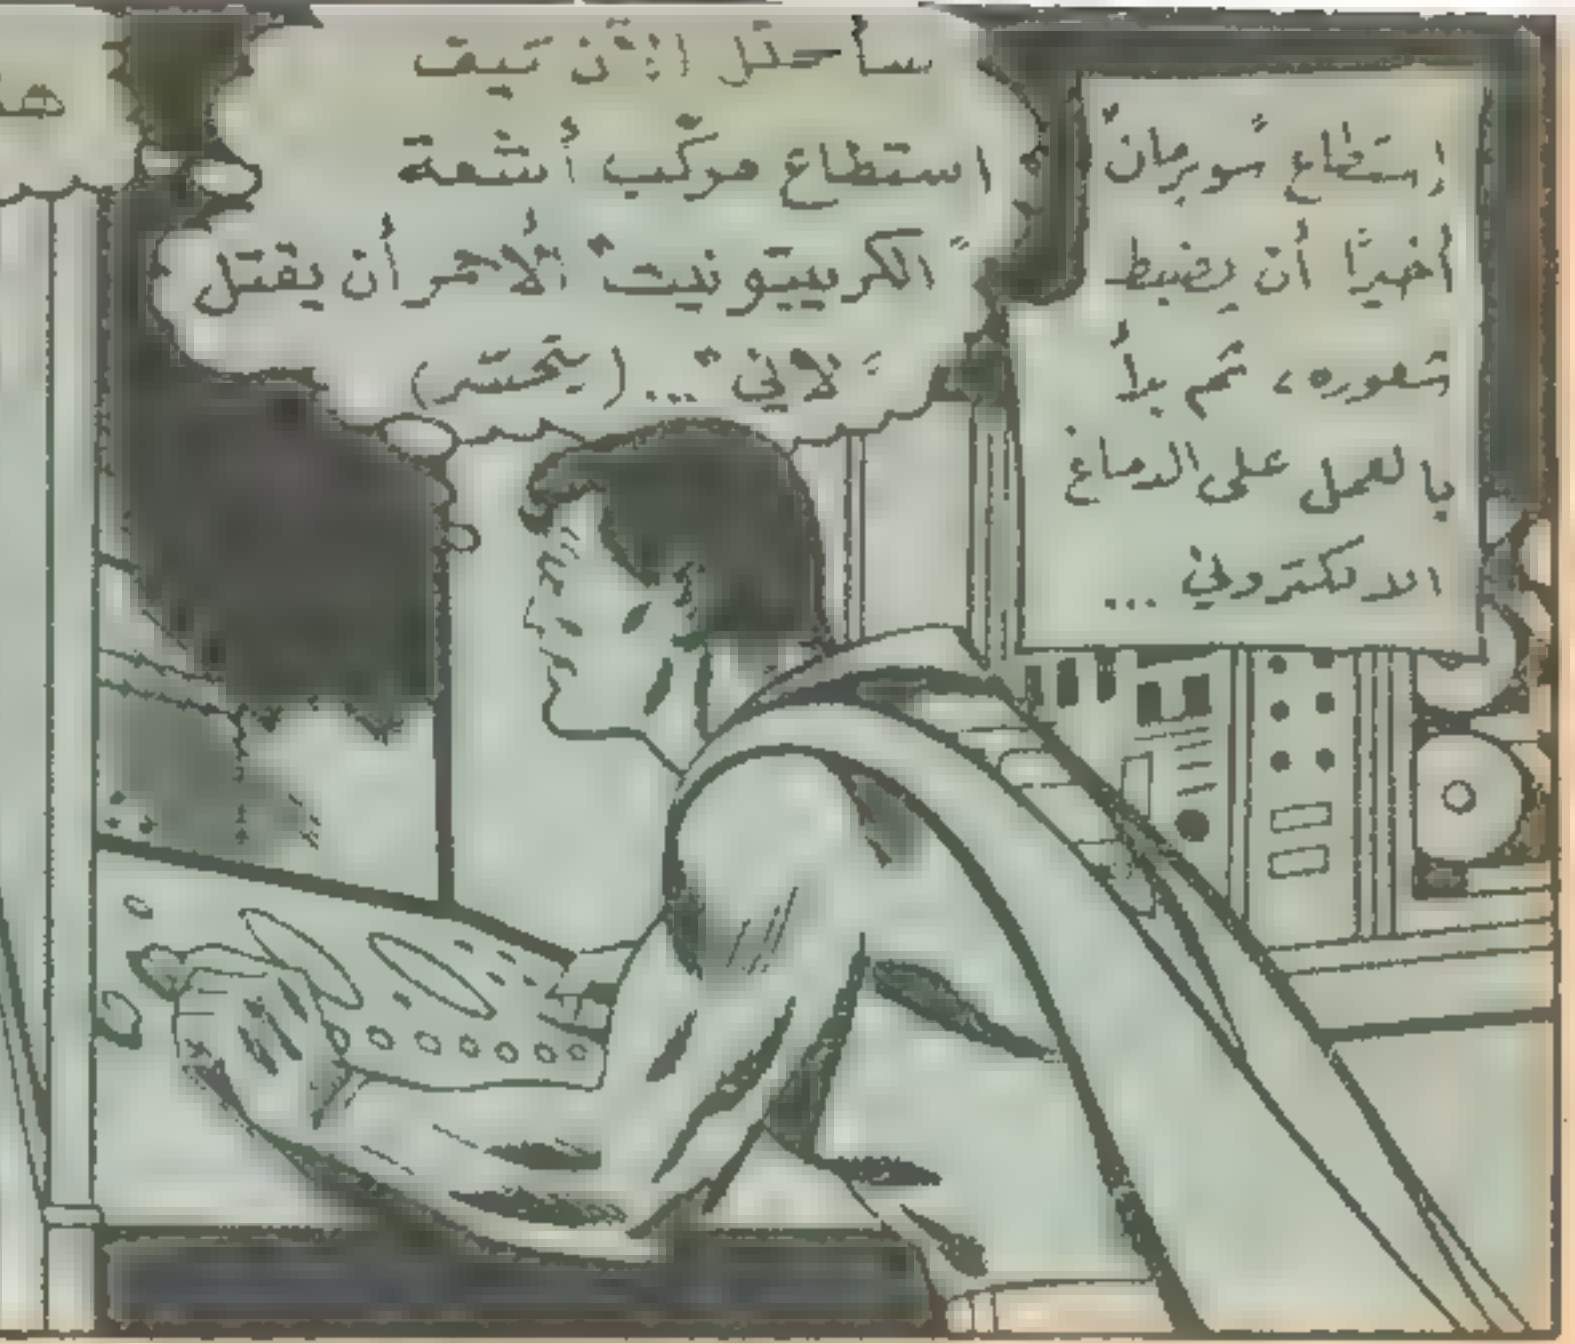 إستطاع سوبرمان
أخيرًا أن يضبط
شعوره، ثم بدأ
بالعمل على الدماغ
الالكتروني ...
سأحلل الآن كيف
استطاع مركّب أشعة
"الكريبتونيت" الأحمر أن يقتل
"لاني" ... (يتحسّر)
هذ